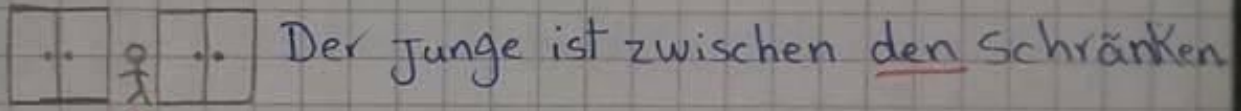 Der Junge ist zwischen den Schränken